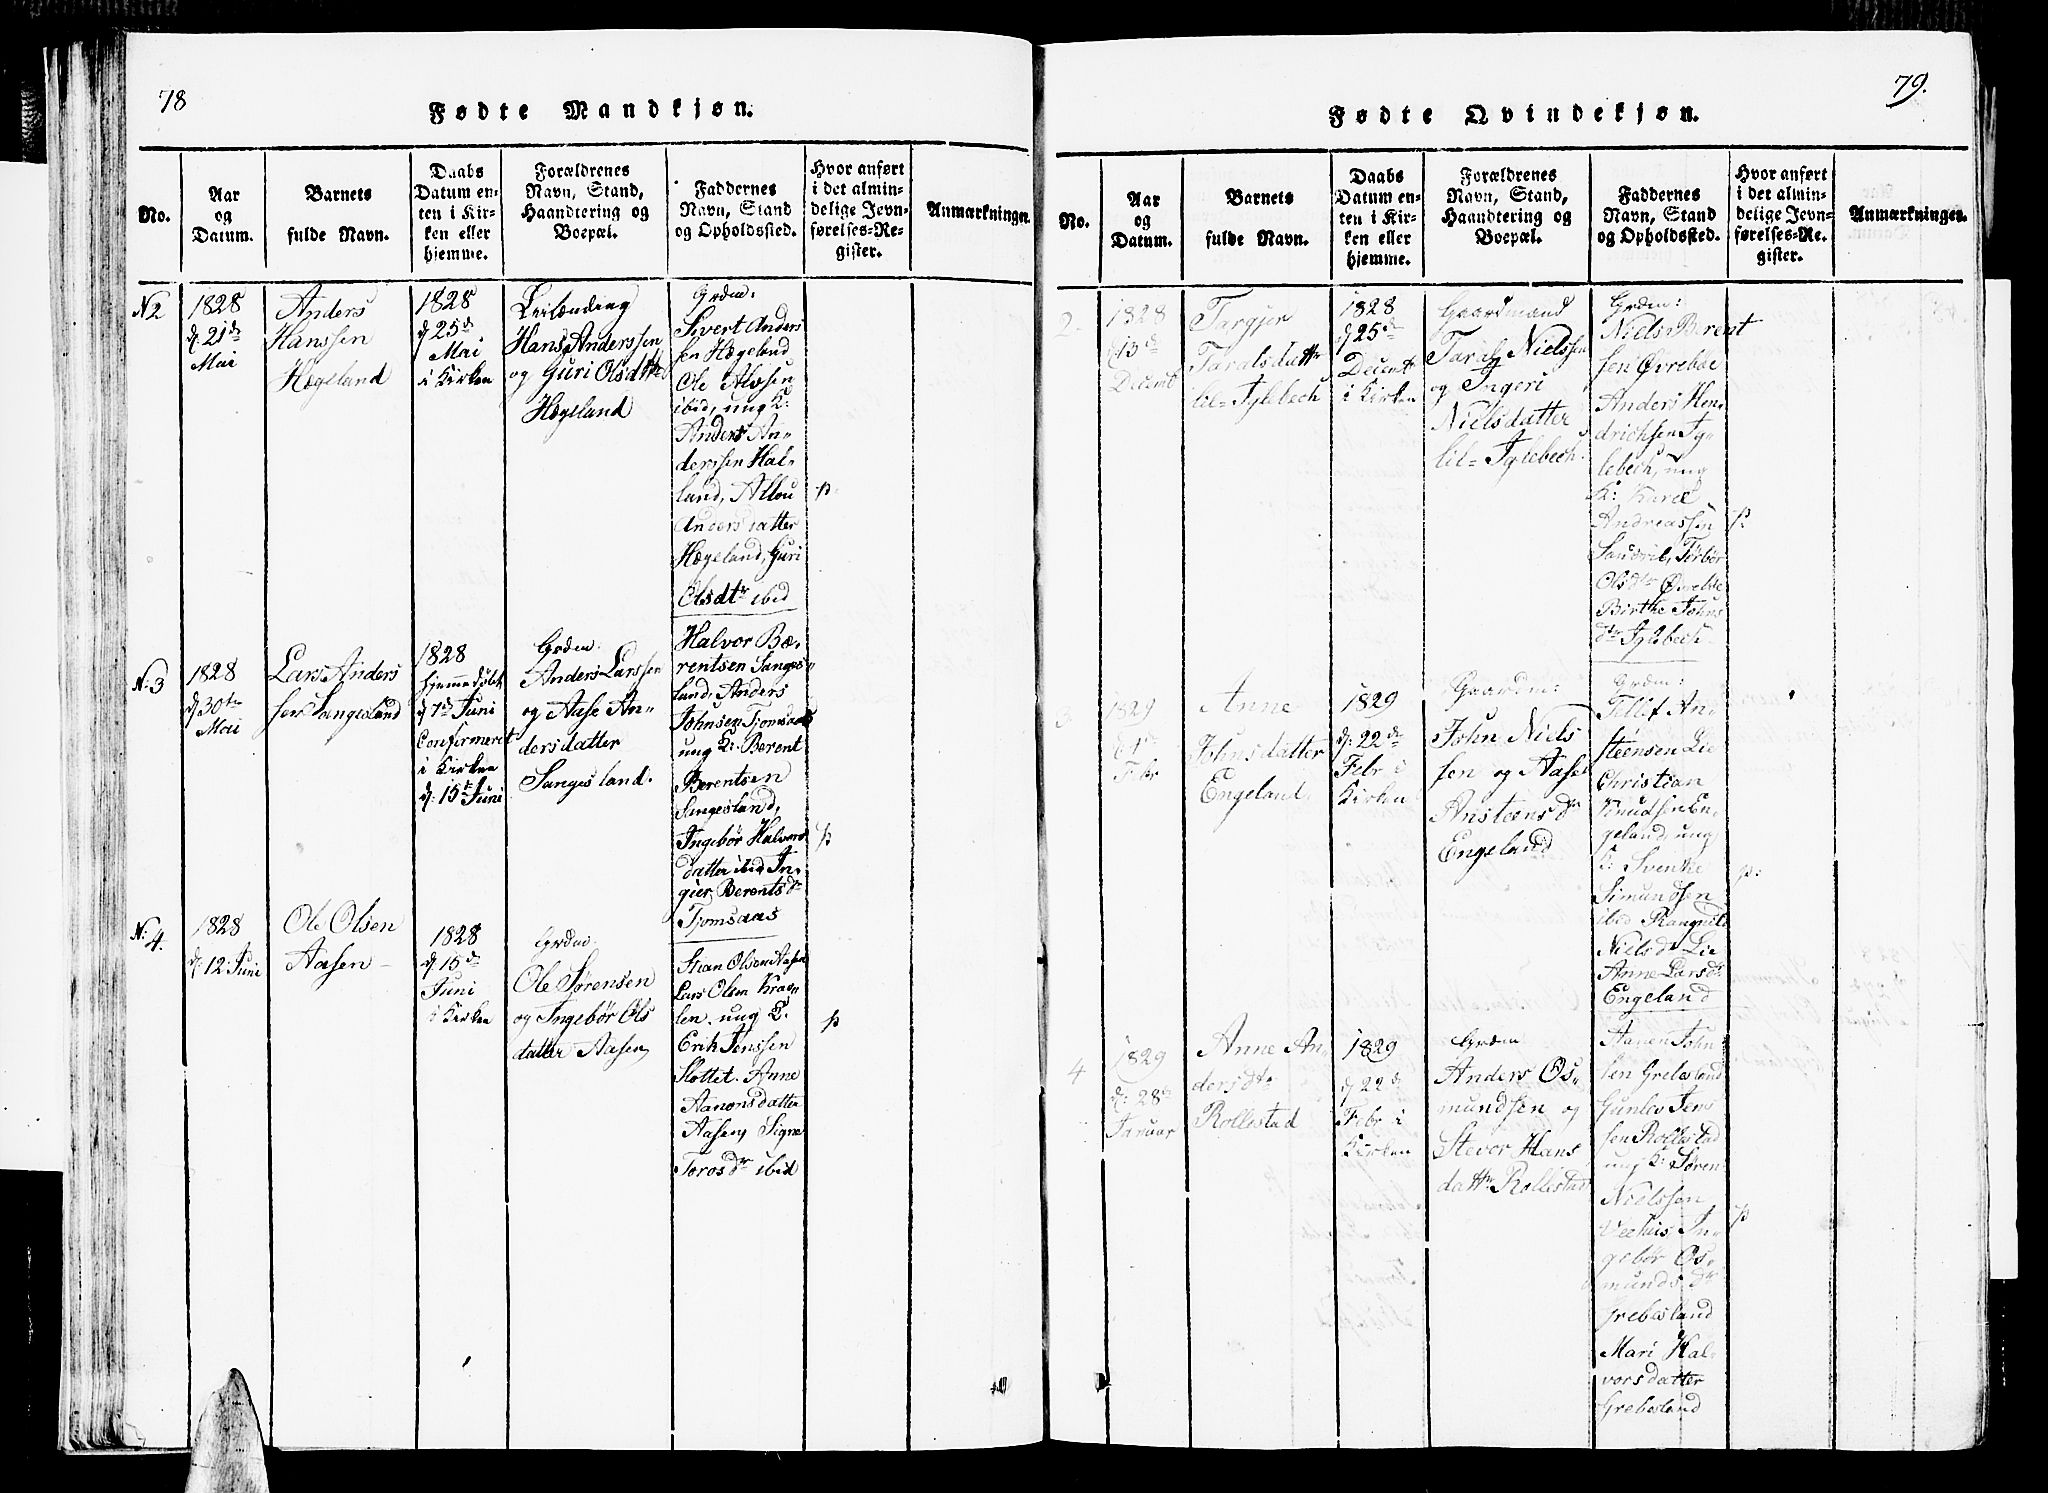 78
Fødte Mandkjøn.
No.
Aar
og
Datum.
Barnets
fulde Navn.
Daabs
Datum en-
ten i Kir-
ken eller
hjemme.
Forældrenes
Navn, Stand,
Haandtering og
Boepæl.
Faddernes
Navn, Stand
og Opholdssted.
Hvor anført
i det almin-
delige Jevn-
førelses-Re-
gister.
Anmærkninger.
N2
1828
d. 21de
Mai
Anders
Hanssen
Hægeland
1828
d 25de
Mai
i Kirken
Leilænding
Hans Anderssen
og Guri Olsdttr
Hægeland
Grdm:
Sivert Anders
sen Hægeland
Ole Alvsen
ibid, ung K:
Anders An-
derssen Hal-
land, Allou
Andersdatter
Hægeland, Guri
Olsdtr ibid
p.
N:3
1828
d 30te
Mai
Lars Anders
sen Sangesland
1828
hjemmedøbt
d 7de Juni
Confirmeret
i Kirken
d: 15de Juni
Grdm:
Anders Larssen
og Aase An-
dersdatter
Sangesland.
Halvor Be-
rentsen Sanges-
land, Anders
Johnsen Tjomsaas
ung K: Berent
Berentsen
Sangesland,
Ingebør Halvors
datter ibid In-
gier Berentsdr
Tjomsaas
p
N:4.
1828
d: 12 Juni
Ole Olsen
Aasen
1828
d: 15de
Juni
i Kirken
Grdm:
Ole Sørensen
og Ingebør Ols
datter Aasen
Stian Olsen Aasen
Lars Olsen Kraage-
len. ung K.
Erik Jenssen
Slottet. Anne
Aanonsdatter
Aasen, Signe
Torosdr ibid
p
79.
Fødte Qvindekjøn.
No.
Aar
og
Datum.
Barnets
fulde Navn.
Daabs
Datum en-
ten i Kir-
ken eller
hjemme.
Forældrenes
Navn, Stand,
Haandtering og
Boepæl.
Faddernes
Navn, Stand
og Opholdssted.
Hvor anført
i det almin-
delige Jevn-
førelses-Re-
gister.
Anmærkninger.
2.
1828
Decemb
Targjer
Taralsdattr
lil- Iglebech
1828
d 25de
Decembr
i Kirken
Gaardmand
Taral Nielssen
og Ingeri
Nielsdatter
lil- Iglebech.
Grdm:
Niels Berent
sen Øvreboe
Anders Hen-
drichsen Ig-
lebech, ung
K:
Andreassen
Sandvil, Torbør
Olsdtr Øvrebøe
Birthe Johns
dtr Iglebech
p.
3
1829
Febr
Anne
Johnsdatter
Engeland.
1829
d: 22de
Febr i
Kirken
Gaardm:
John Niels
sen og Aase
Ansteensdr
Engeland
Grdm:
Tellef An-
steensen Lie
Christian
Knudsen En-
geland, ung
K: Svenke
Simundsen
ibid Rangnild
Nielsdr Lie
Anne Larsdr
Engeland
p:
4
1829
d: 28de
Januar
Anne An-
dersdtr
Rollestad
1829
d 22de
Febr i
Kirken
Grdm
Anders Os-
mundsen og
Stevor Hans
dattr Rollestad
Aanen John-
sen Grebesland
Gunlev Jens
sen Rollestad
ung K: Søren
Nielssen
In-
gebør Os-
mundsdr
Grebesland
Mari Hal-
vorsdatter
Grebesland
p